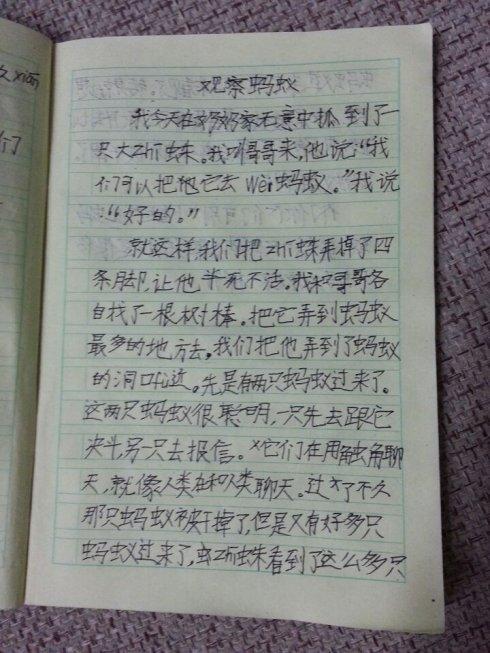 久xiān
们
观察蚂蚁
我今天在奶奶家无意中抓到了一
只大zhī蛛。我叫哥哥来,他说:“我
们可以把他它去wèi蚂蚁。”我说
:“好的。”
就这样,我们把zhī蛛弄掉了四
条脚,让他半死不活。我和哥哥各
自找了一根树棒。把它弄到蚂蚁
最多的地方去。我们把他弄到了蚂蚁
的洞口边。先是有两只蚂蚁过来了。
这两只蚂蚁很聪明,一只先去跟它
决斗,另只去报信。它们在用触角聊
天,就像人类在和人类聊天。过了不久
那只蚂蚁被干掉了,但是又有好多只
蚂蚁过来了,zhī蛛看到了这么多只